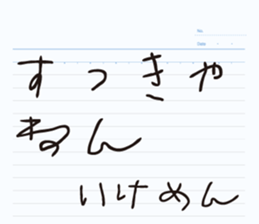 No.
Date
すっきゃ
ねん
いけめん